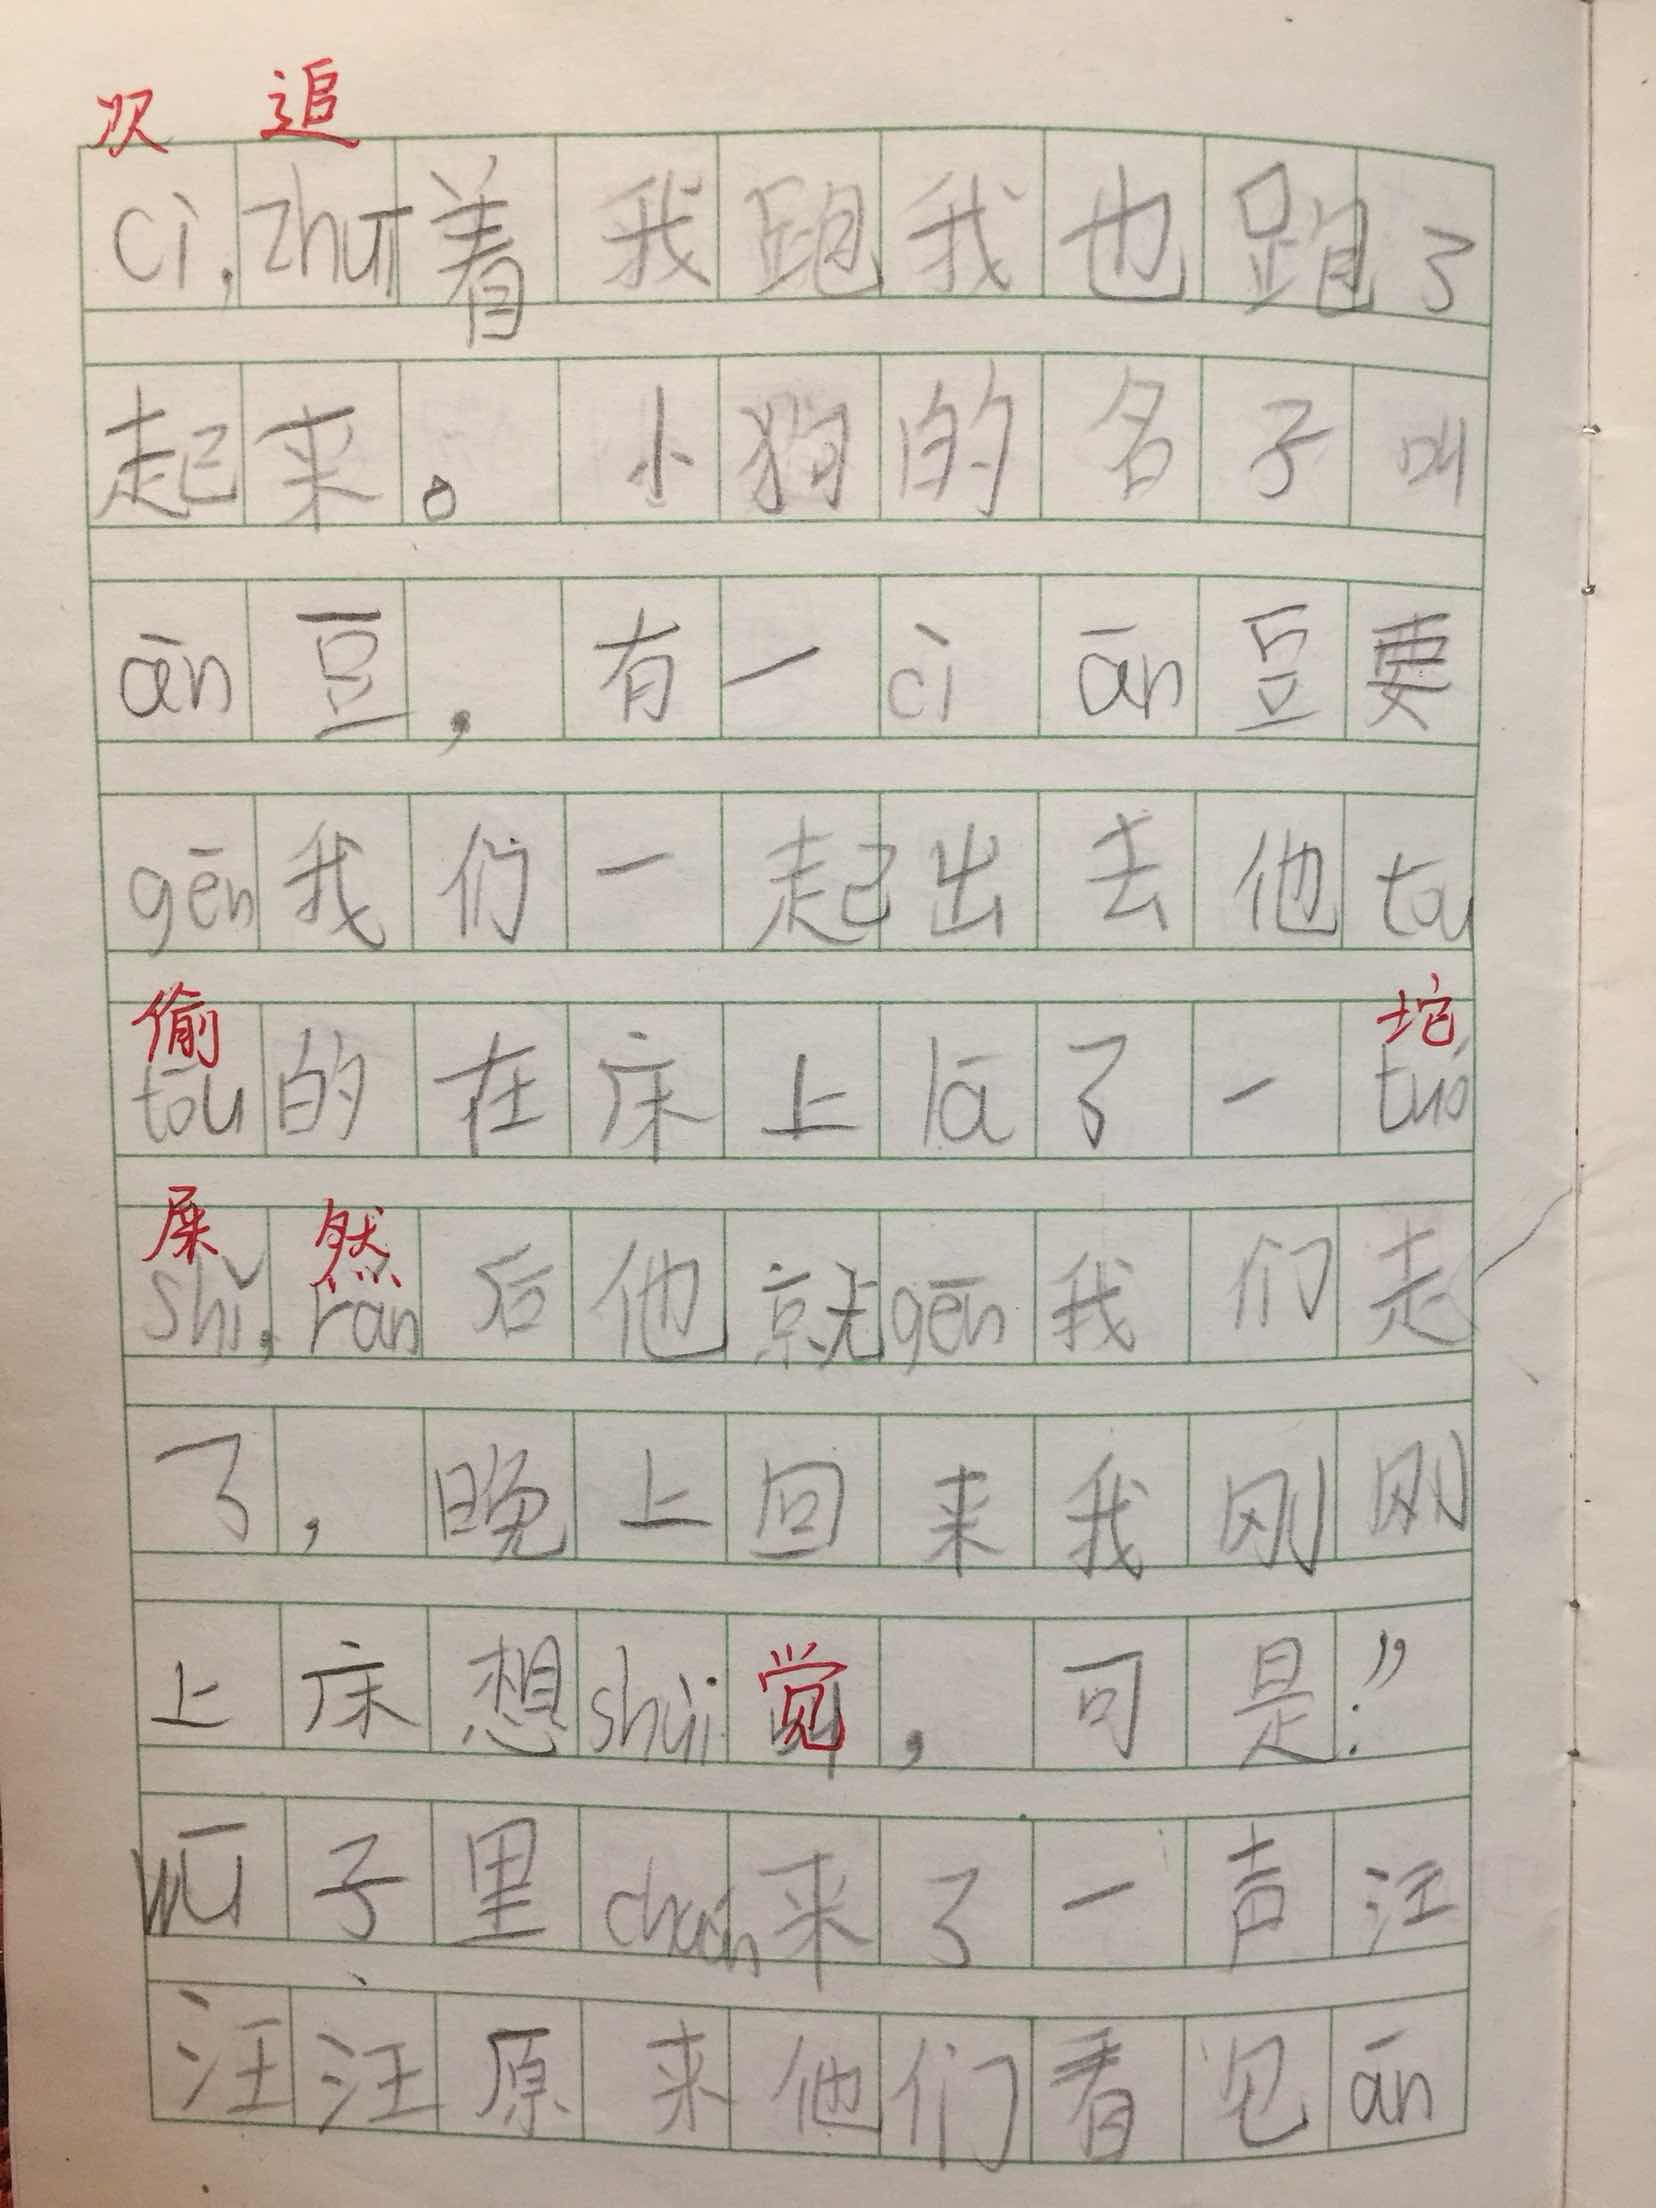 次 追
cì，zhuī着我跑我也跑了
起来。小狗的名子叫
ān豆，有一cì ān豆要
gēn我们一起出去他tou
偷 坨
tōu的在床上lā了一tuó
屎 然
shǐ，rán后他就gēn我们走
了，晚上回来我刚刚
上床想shuì觉，可是：”
wū子里chuán来了一声汪
汪汪原来他们看见ān